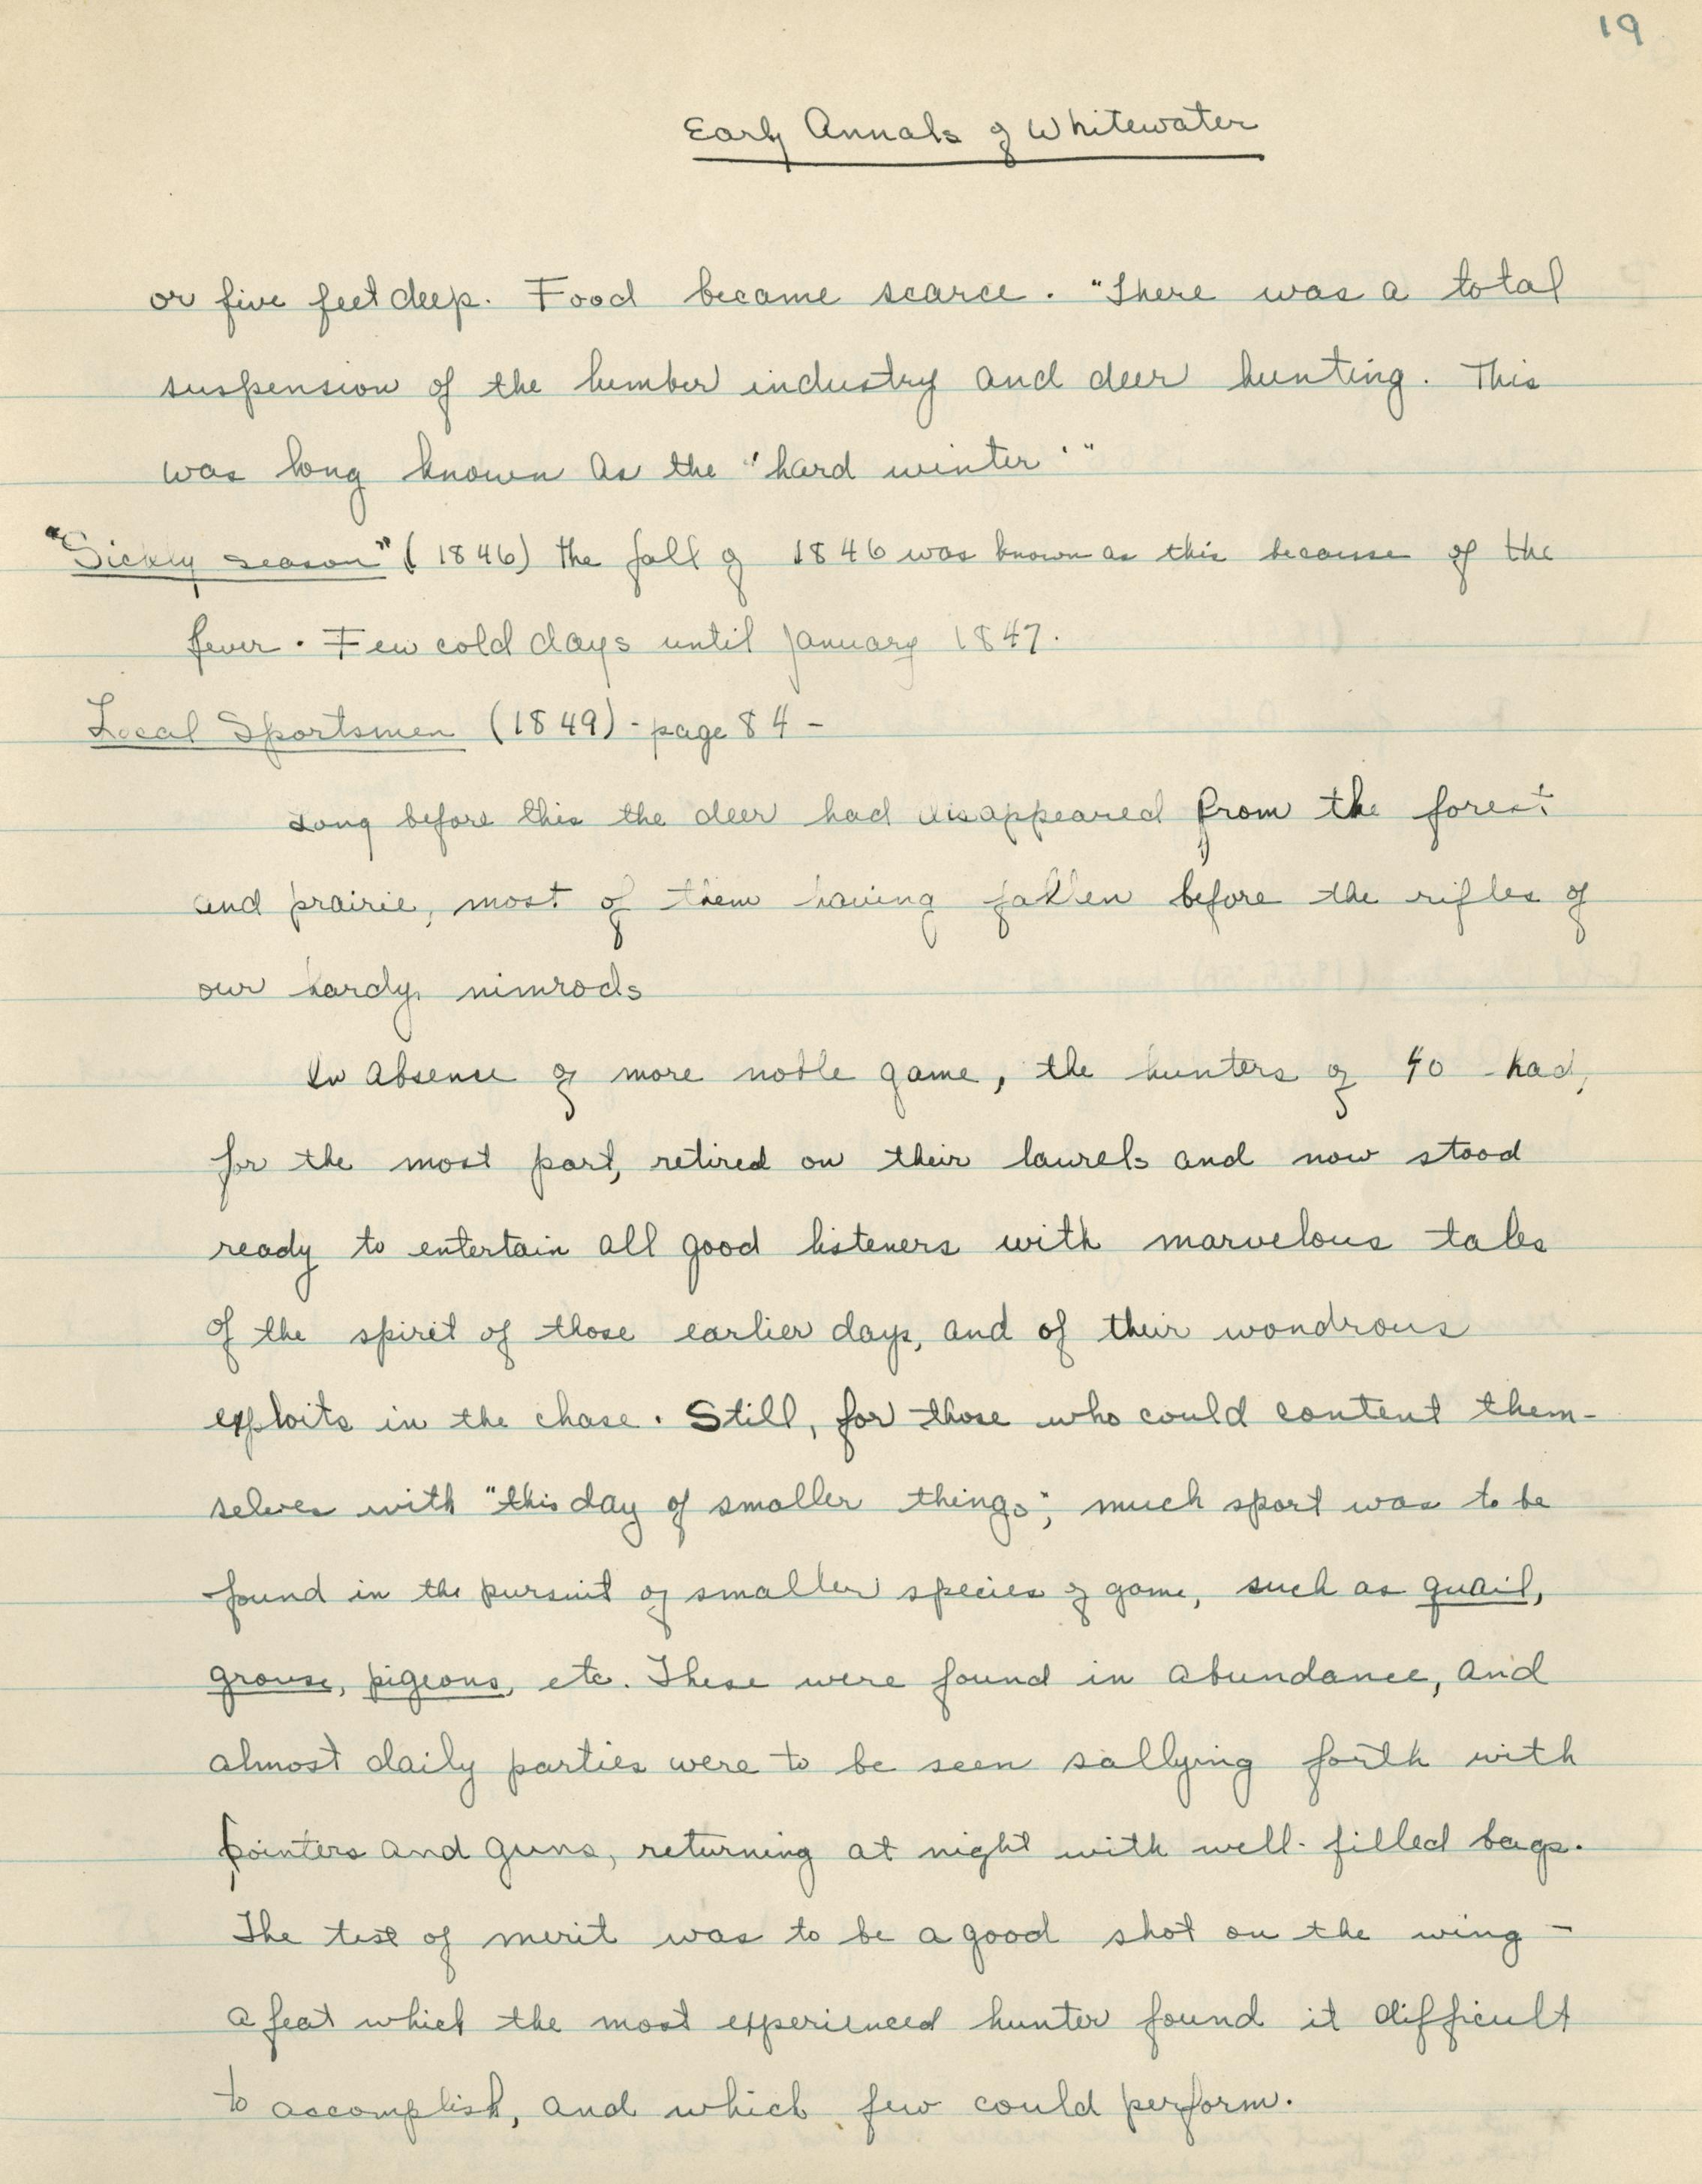 19
Early Annals of Whitewater
or five feet deep. Food became scarce. "There was a total
suspension of the lumber industry and deer hunting. This
was long known as the 'hard winter'"
"Sickly season" (1846) The fall of 1846 was known as this because of the
fever. Few cold days until January 1847.
Local Sportsmen (1849) - page 84 -
Long before this the deer had disappeared from the forest
and prairie, most of them having fallen before the rifles of
our hardy nimrods
In absence of more noble game, the hunters of 40 had,
for the most part, retired on their laurels and now stood
ready to entertain all good listeners with marvelous tales
of the spirit of those earlier days, and of their wondrous
exploits in the chase. Still, for those who could content them-
selves with "this day of smaller things", much sport was to be
found in the pursuit of smaller species of game, such as quail,
grouse, pigeons, etc. These were found in abundance, and
almost daily parties were to be seen sallying forth with
pointers and guns, returning at night with well-filled bags.
The test of merit was to be a good shot on the wing -
a feat which the most experienced hunter found it difficult
to accomplish, and which few could perform.